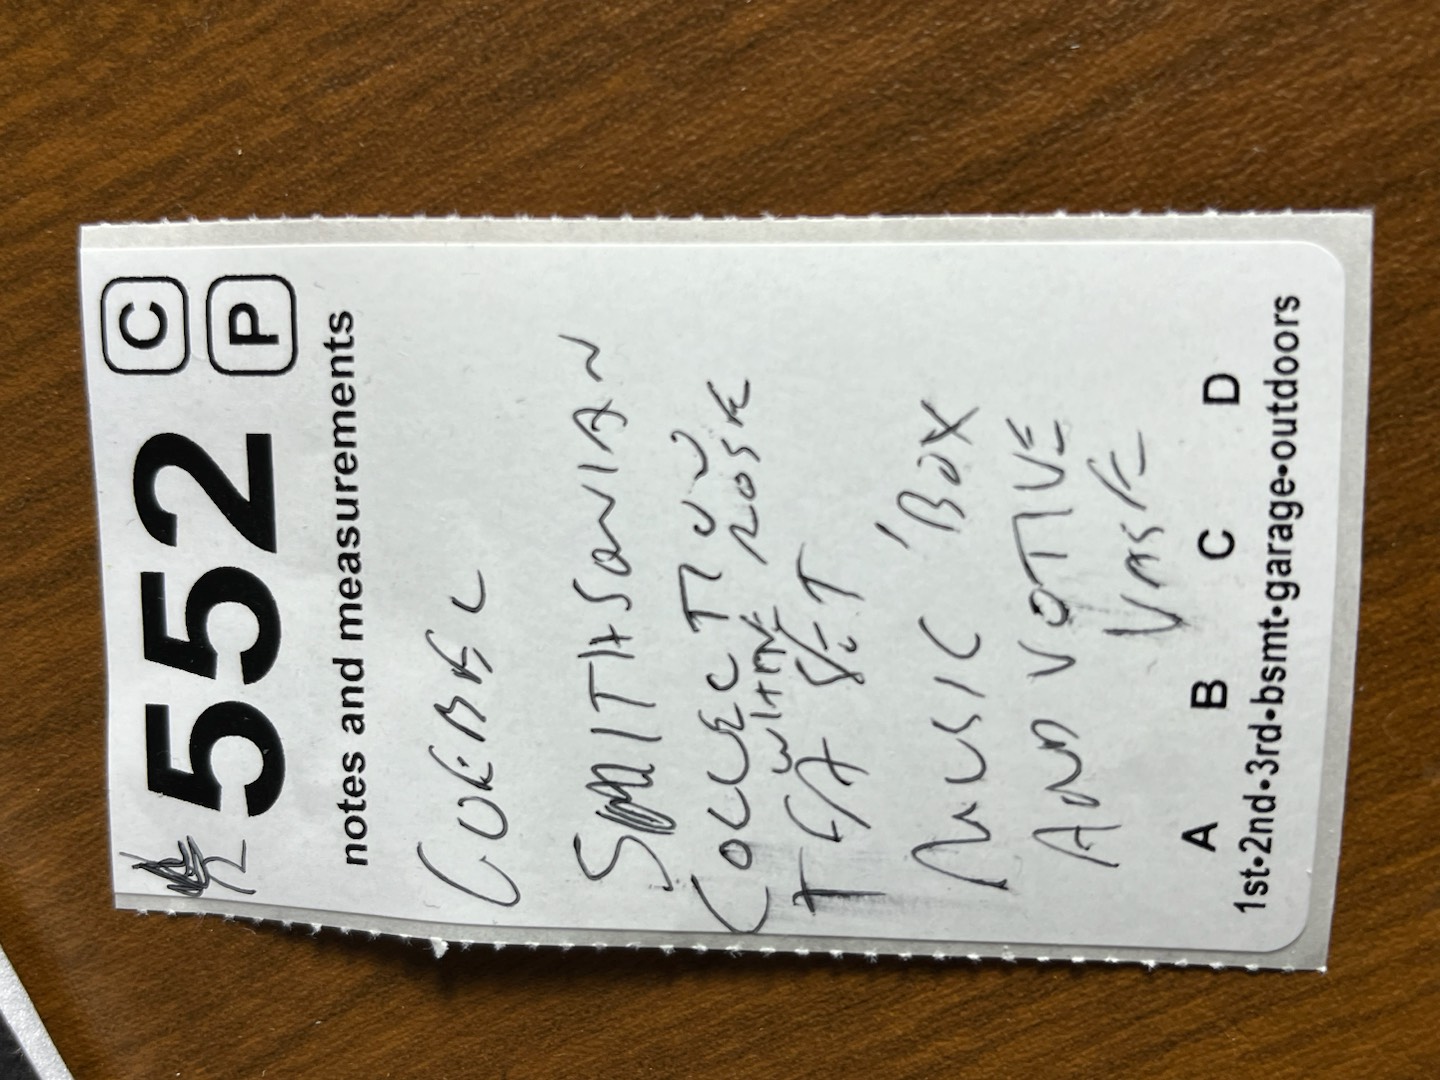 552 C
P
notes and measurements
GOEBEL
SMITHSONIAN
COLLECTION
WHITE ROSE
TEA SET
MUSIC BOX
AND VOTIVE
VASE
A B C D
1st•2nd•3rd•bsmt•garage•outdoors